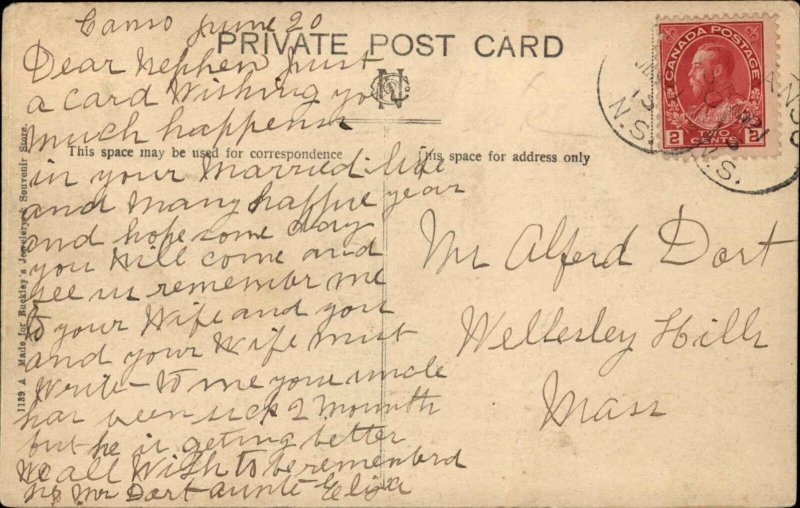 Canso June 20
PRIVATE POST CARD
Dear Nephew Just
a card wishing you
much happenss
This space may be used for correspondence
This space for address only
in your married life
and many happie year
and hope some day
you will come and
see us remember me
to your wife and you
and your wife must
write to me your uncle
has been sick 2 mounth
but he is geting better
we all wish to be rememberd
Mr Dort aunte Eliza
Mr Alferd Dort
Wellesley Hills
Mass
CANADA POSTAGE
2 TWO CENTS 2
CANSO
N.S.
N.S.
1139 A Made for Buckley's Jewelery & Souvenir Store.